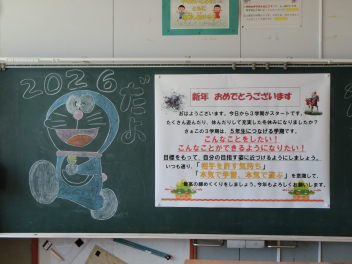 2026
だよ
新年 おめでとうございます
おはようございます。今日から3学期がスタートです。
たくさん遊んだり、休んだりして充実した冬休みになりましたか？
さぁこの3学期は、5年生につなげる学期です。
こんなことをしたい！
こんなことができるようになりたい！
目標をもって、自分の目指す姿に近づけるようにしましょう。
いつも通り、「相手を許す気持ち」
「本気で学習、本気で遊ぶ」を意識して、
最高の締めくくりをしましょう。今年もよろしくお願いします。